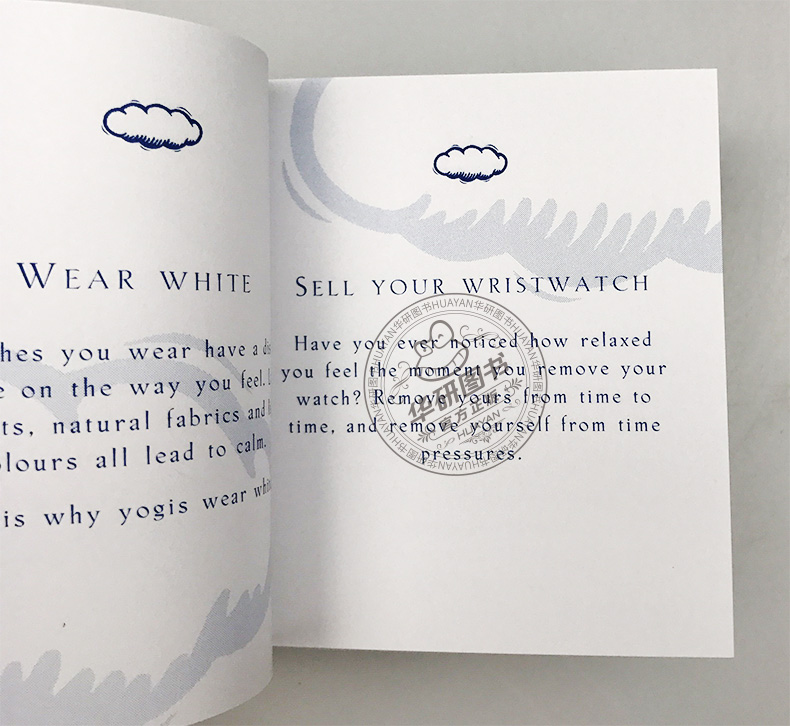 WEAR WHITE
hes you wear have a
e on the way you feel.
ts, natural fabrics and
lours all lead to calm.
is why yogis wear
SELL YOUR WRISTWATCH
Have you ever noticed how relaxed
you feel the moment you remove your
watch? Remove yours from time to
time, and remove yourself from time
pressures.
华研图书HUAYAN华研图书HUAYAN华研图书HUAYAN华研图书HUAYAN
华研图书
官方正版
HUAYAN